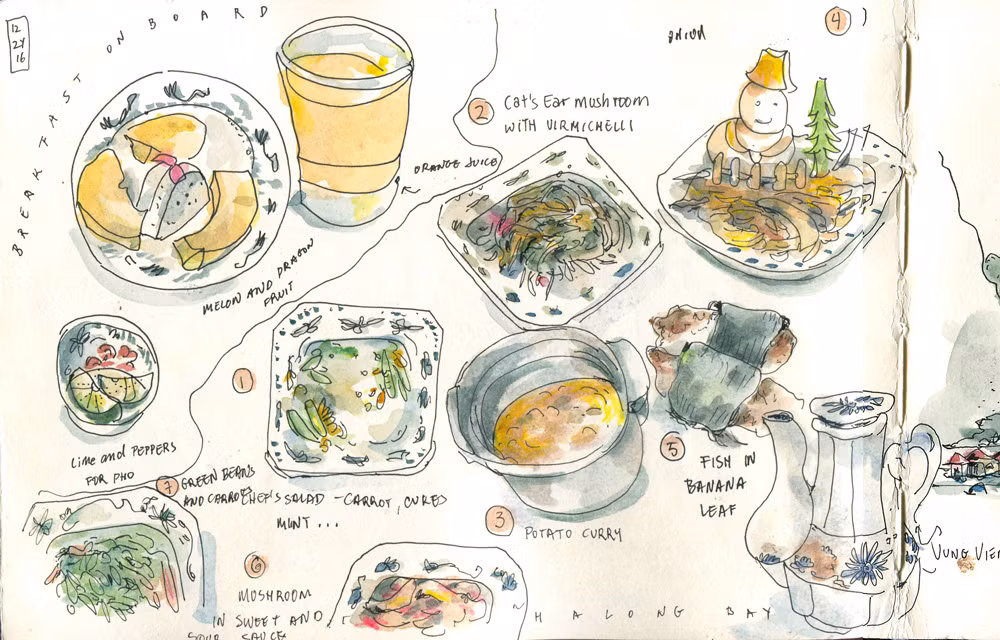 12
24
16
BREAKFAST ON BOARD
ORANGE JUICE
MELON AND DRAGON
FRUIT
2 Cat's Ear mushroom
WITH VIRMICHELLI
4
ONION
Lime and PEPPERS
FOR PHO
1
CHEF'S SALAD - CARROT, CUKES
MINT ...
7 GREEN BEANS
AND CARROTS
3
POTATO CURRY
5
FISH IN
BANANA
LEAF
6
MUSHROOM
IN SWEET AND
SOUR SAUCE
HALONG BAY
VUNG VIEN